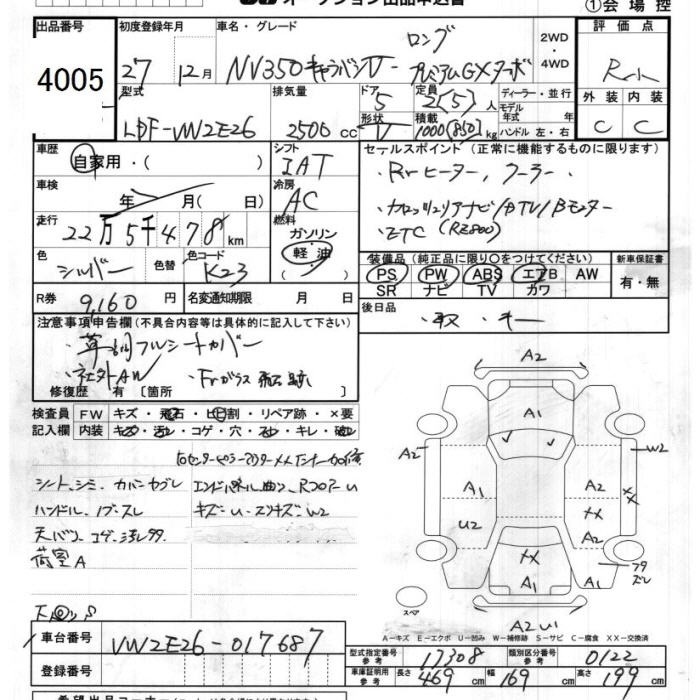 オークション出品申込書
①会場控
出品番号 初度登録年月 車名・グレード 2WD・4WD 評価点
4005
27年 12月 NV350キャラバンV ロング プレミアムGXターボ
型式 排気量 ドア 定員 ディーラー・並行 外装 内装
LDF-VW2E26 2500cc 5 2(5)人
モデル年式 年式
形状 V 積載 1000(850)kg ハンドル 左・右 C C
車歴 シフト セールスポイント(正常に機能するものに限ります)
自家用・( ) IAT
・Rrヒーター, クーラー,
車検 冷房
年 月( 日) AC
・カロッツェリアナビ/DTV/Bモニター
走行 燃料
22万5千478km ガソリン 軽油 ( )
・ETC
色 色替 色コード
シルバー K23
装備品(純正品に限り○をつけてください) 新車保証書
PS PW ABS エアB AW 有・無
SR ナビ TV カワ
R券 9,160円 名変通知期限 月 日
後日品 ・取・キー
注意事項申告欄(不具合内容等は具体的に記入して下さい)
フルシートカバー
・社外AW ・Frガラス飛石跡
修復歴 有 [箇所 ]
検査員記入欄
FW キズ・飛石・ヒビ割・リペア跡・×要
内装 キズ・汚レ・コゲ・穴・スレ・キレ・破レ
シート、シミ、カバーヤブレ エンドパネル曲り、
ハンドル、ノブスレ キズ
天バリ コゲ・汚レ
荷室A
A2
A1
A2 W2
A1 A2 ××
U2 ×× A2
××
A1 A1
スペア
A2
A-キズ E-エクボ U-凹み W-補修跡 S-サビ C-腐食 XX-交換済
車台番号 VW2E26-017687
登録番号
型式指定番号 参考 17308 類別区分番号 参考 0122
車庫証明用 参考 長さ 469cm 幅 169cm 高さ 199cm